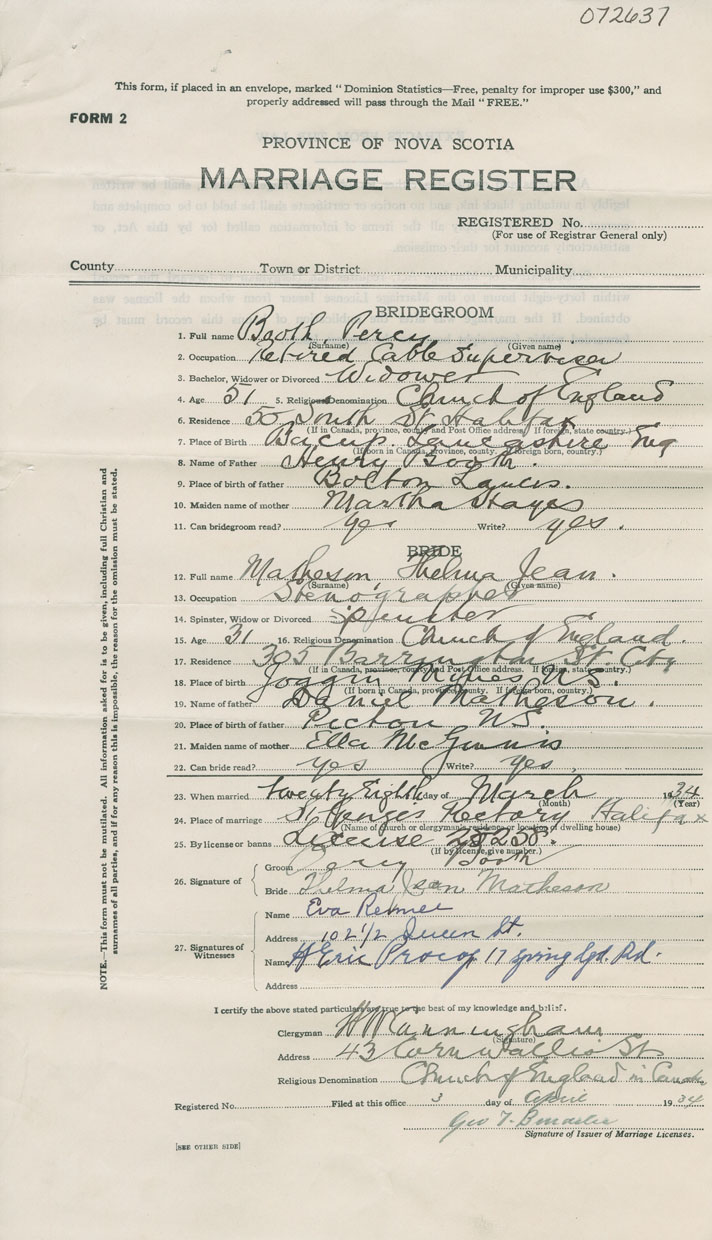 072637
This form, if placed in an envelope, marked "Dominion Statistics—Free, penalty for improper use $300," and
properly addressed will pass through the Mail "FREE."
FORM 2
PROVINCE OF NOVA SCOTIA
MARRIAGE REGISTER
REGISTERED No.
(For use of Registrar General only)
County Town or District Municipality
BRIDEGROOM
1. Full name Booth, Percy
(Surname) (Given name)
2. Occupation Retired Cable Supervisor
3. Bachelor, Widower or Divorced Widower
4. Age 51 5. Religious Denomination Church of England
6. Residence 50 South St Halifax
(If in Canada, province, county and Post Office address. If foreign, state country.)
7. Place of Birth Bacup. Lancashire Eng
(If born in Canada, province, county. If foreign born, country.)
8. Name of Father Henry Booth.
9. Place of birth of father Bolton Lancs.
10. Maiden name of mother Martha Hayes
11. Can bridegroom read? yes Write? yes.
BRIDE
12. Full name Matheson, Thelma Jean.
(Surname) (Given name)
13. Occupation Stenographer
14. Spinster, Widow or Divorced Spinster
15. Age 31 16. Religious Denomination Church of England.
17. Residence 305 Barrington St. City
(If in Canada, province, county and Post Office address. If foreign, state country.)
18. Place of birth Joggin Mines N.S.
(If born in Canada, province, county. If foreign born, country.)
19. Name of father Daniel Matheson.
20. Place of birth of father Pictou N.S.
21. Maiden name of mother Ella McGinnis
22. Can bride read? yes Write? yes.
23. When married twenty Eighth day of March 1934
(Month) (Year)
24. Place of marriage St Georges Rectory Halifax
(Name of church or clergyman's residence or location of dwelling house)
25. By license or banns License
(If by license, give number.)
26. Signature of
Groom Percy Booth
Bride Thelma Jean Matheson
27. Signatures of Witnesses
Name Eva
Address 102 1/2 Queen St.
Name H Eric 17 Spring Gd. Rd.
Address
I certify the above stated particulars are true to the best of my knowledge and belief.
Clergyman H W Cunningham
(Signature)
Address 43 Cornwallis St
Religious Denomination Church of England in Canada
Registered No. Filed at this office 3 day of April 1934
Geo T.
Signature of Issuer of Marriage Licenses.
[SEE OTHER SIDE]
NOTE.—This form must not be mutilated. All information asked for is to be given, including full Christian and
surnames of all parties, and if for any reason this is impossible, the reason for the omission must be stated.